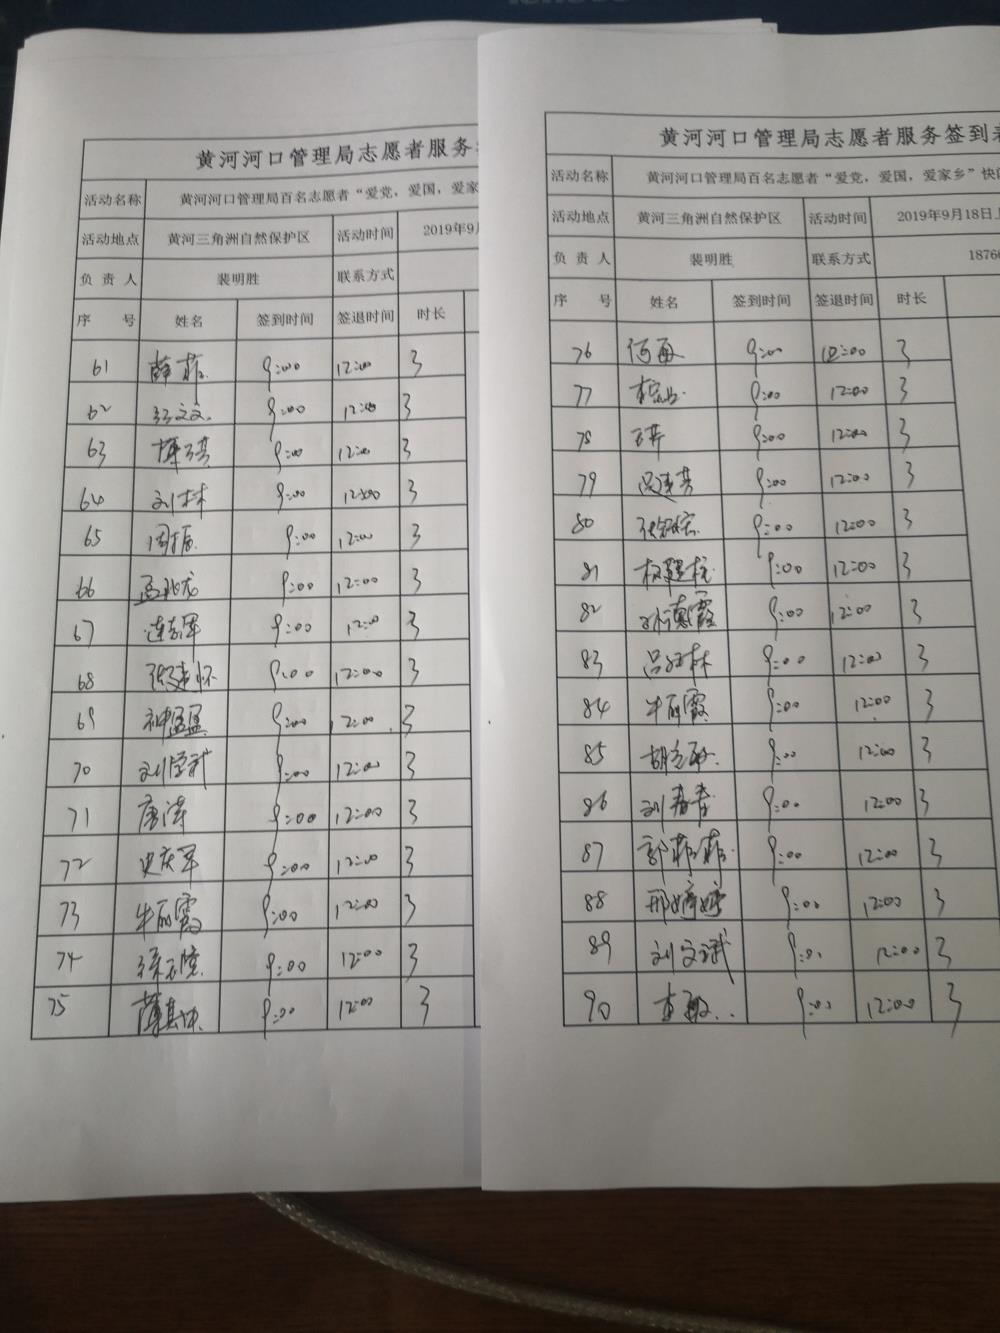 黄河河口管理局志愿者服务
活动名称 黄河河口管理局百名志愿者“爱党，爱国，爱家
活动地点 黄河三角洲自然保护区 活动时间 2019年9月
负责人 裴明胜 联系方式
序号 姓名 签到时间 签退时间 时长
61 薛菲 9:00 12:00 3
62 9:00 12:00 3
63 9:00 12:00 3
64 刘林 9:00 12:00 3
65 周振 9:00 12:00 3
66 孟兆龙 9:00 12:00 3
67 连志军 9:00 12:00 3
68 张建怀 9:00 12:00 3
69 神盈盈 9:00 12:00 3
70 刘宝武 9:00 12:00 3
71 唐涛 9:00 12:00 3
72 史庆军 9:00 12:00 3
73 牛丽霞 9:00 12:00 3
74 9:00 12:00 3
75 9:00 12:00 3
黄河河口管理局志愿者服务签到表
活动名称 黄河河口管理局百名志愿者“爱党，爱国，爱家乡”快
活动地点 黄河三角洲自然保护区 活动时间 2019年9月18日
负责人 裴明胜 联系方式 1876
序号 姓名 签到时间 签退时间 时长
76 9:00 12:00 3
77 9:00 12:00 3
78 9:00 12:00 3
79 吕连芳 9:00 12:00 3
80 9:00 12:00 3
81 9:00 12:00 3
82 孙德霞 9:00 12:00 3
83 9:00 12:00 3
84 牛丽霞 9:00 12:00 3
85 9:00 12:00 3
86 刘春香 9:00 12:00 3
87 郭菲菲 9:00 12:00 3
88 邢婷婷 9:00 12:00 3
89 刘文斌 9:00 12:00 3
90 李敏 9:00 12:00 3